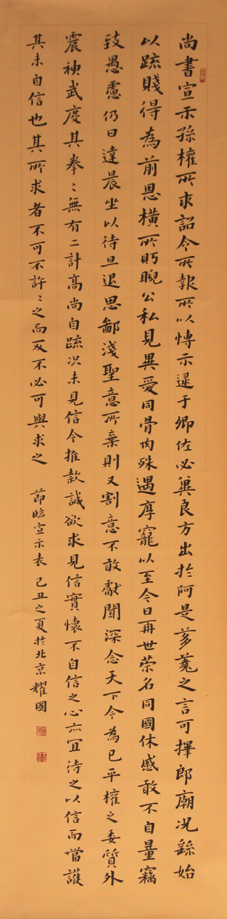 尚書宣示孫權所求詔令所報所以博示逮于卿佐必冀良方出於阿是芻蕘之言可擇郎廟況繇始
以疏賤得為前恩橫所眄睨公私見異愛同骨肉殊遇厚寵以至今日再世榮名同國休慼敢不自量竊
致愚慮仍日達晨坐以待旦退思鄙淺聖意所棄則又割意不敢獻聞深念天下今為已平權之委質外
震神武度其拳〻無有二計高尚自疏況未見信今推款誠欲求見信實懷不自信之心亦宜待之以信而當護
其未自信也其所求者不可不許〻之而反不必可與求之
節臨宣示表己丑之夏於北京耀國